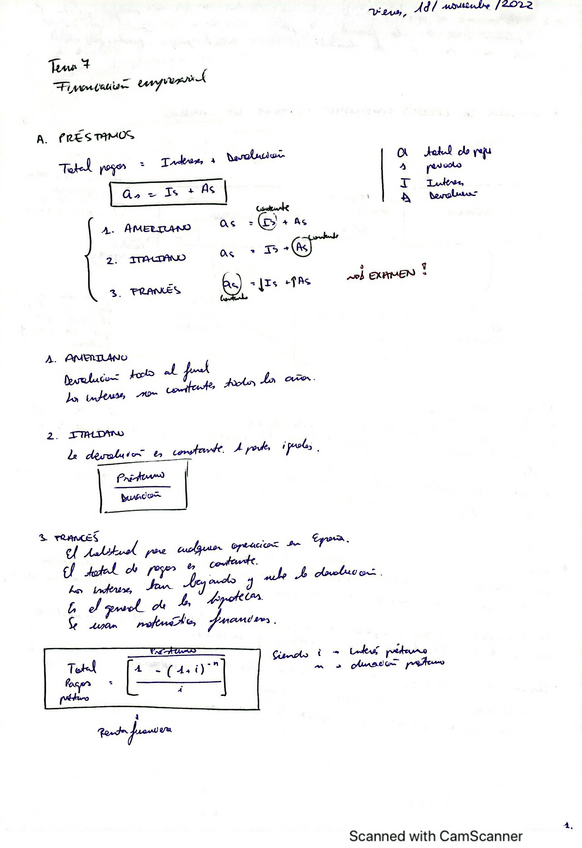 viernes, 18/noviembre/2022
Tema 7
Financiación empresarial
A. PRÉSTAMOS
Total pagos = Intereses + Devolución
as = Is + As
a total de pagos
s periodo
I Interes
A Devolución
constante
1. AMERICANO as = Is + As
2. ITALIANO as = Is + As constante
3. FRANCÉS as = ↓Is + ↑As
constante
¡EXAMEN!
1. AMERICANO
Devolución todo al final
Los intereses son constantes todos los años.
2. ITALIANO
La devolución es constante. A partes iguales.
Préstamo
Duración
3 FRANCÉS
El habitual para cualquier operación en España.
El total de pagos es constante.
Los intereses van bajando y sube la devolución.
Es el general de las hipotecas.
Se usan matemáticas financieras.
Total Pagos préstamo = Préstamo / [1 - (1+i)^-n / i]
Siendo i → interés préstamo
n → duración préstamo
Renta financiera
1.
Scanned with CamScanner